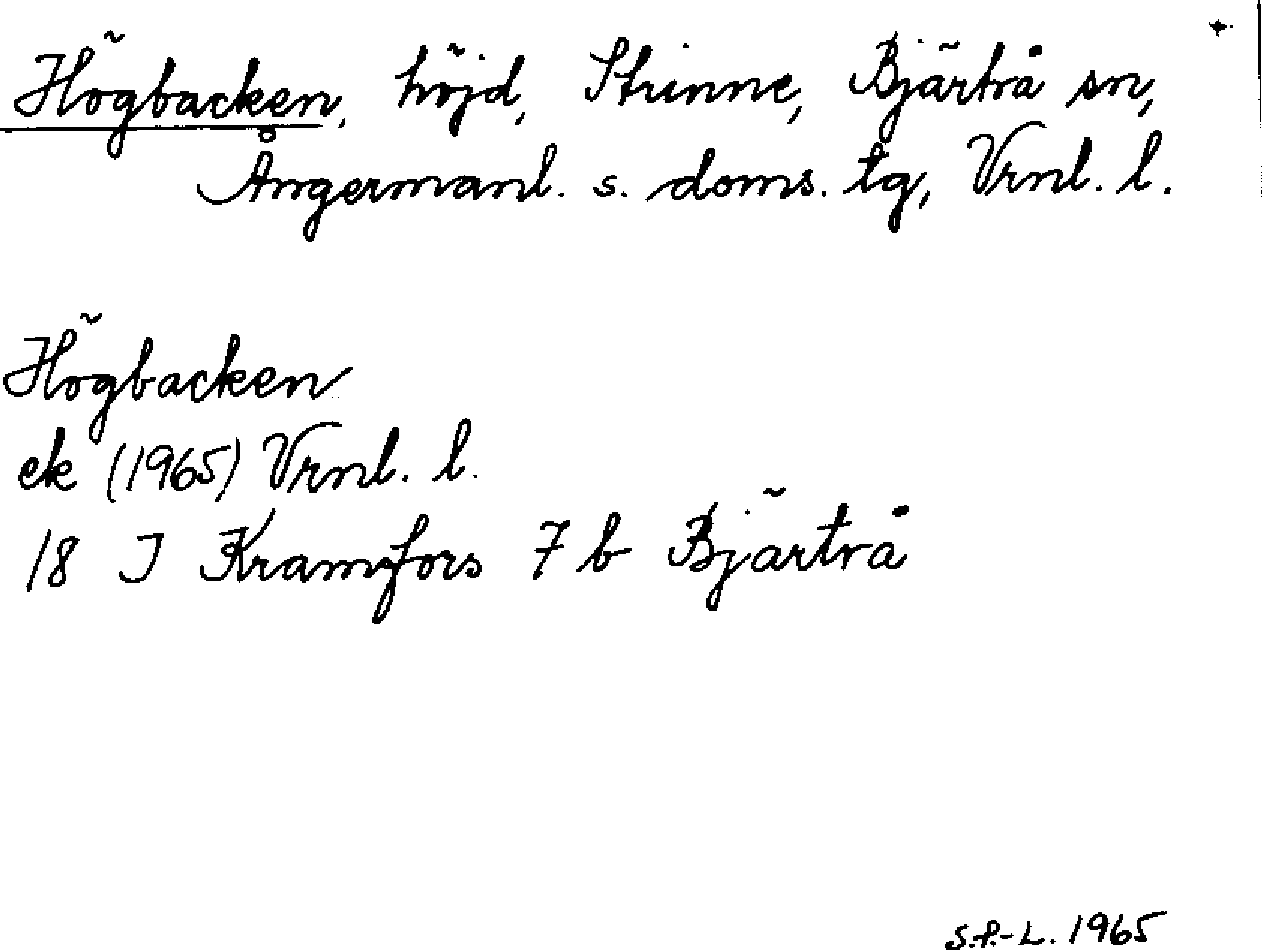 Högbacken, höjd, Strinne, Bjärtrå sn,
Ångermanl. s. doms. tg, Vrnl. l.
Högbacken
ek (1965) Vrnl. l.
18 I Kramfors 7 b Bjärtrå
S.F.-L. 1965